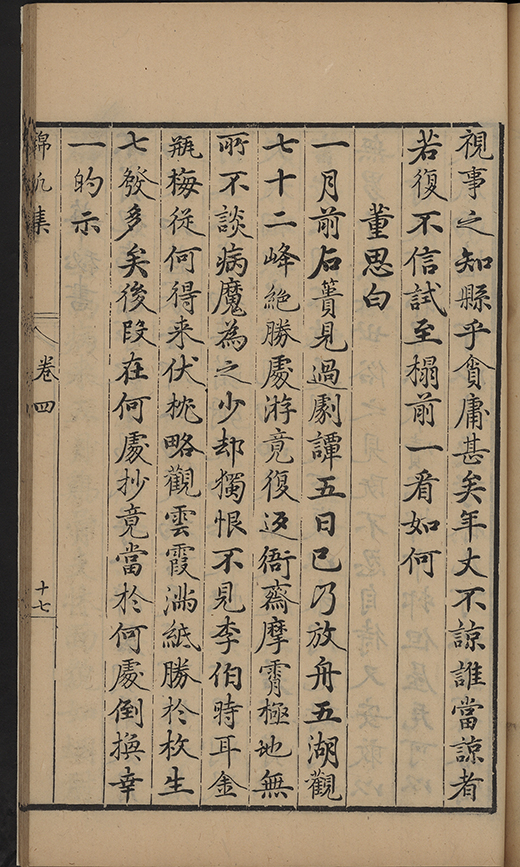 視事之知縣乎貪庸甚矣年丈不諒誰當諒者
若復不信試至榻前一看如何
董思白
一月前石簣見過劇譚五日已乃放舟五湖觀
七十二峰絶勝處游竟復返衙齋摩霄極地無
所不談病魔為之少却獨恨不見李伯時耳金
瓶梅從何得来伏枕略觀雲霞滿紙勝於枚生
七發多矣後段在何處抄竟當於何處倒換幸
一的示
錦帆集
卷四
十七